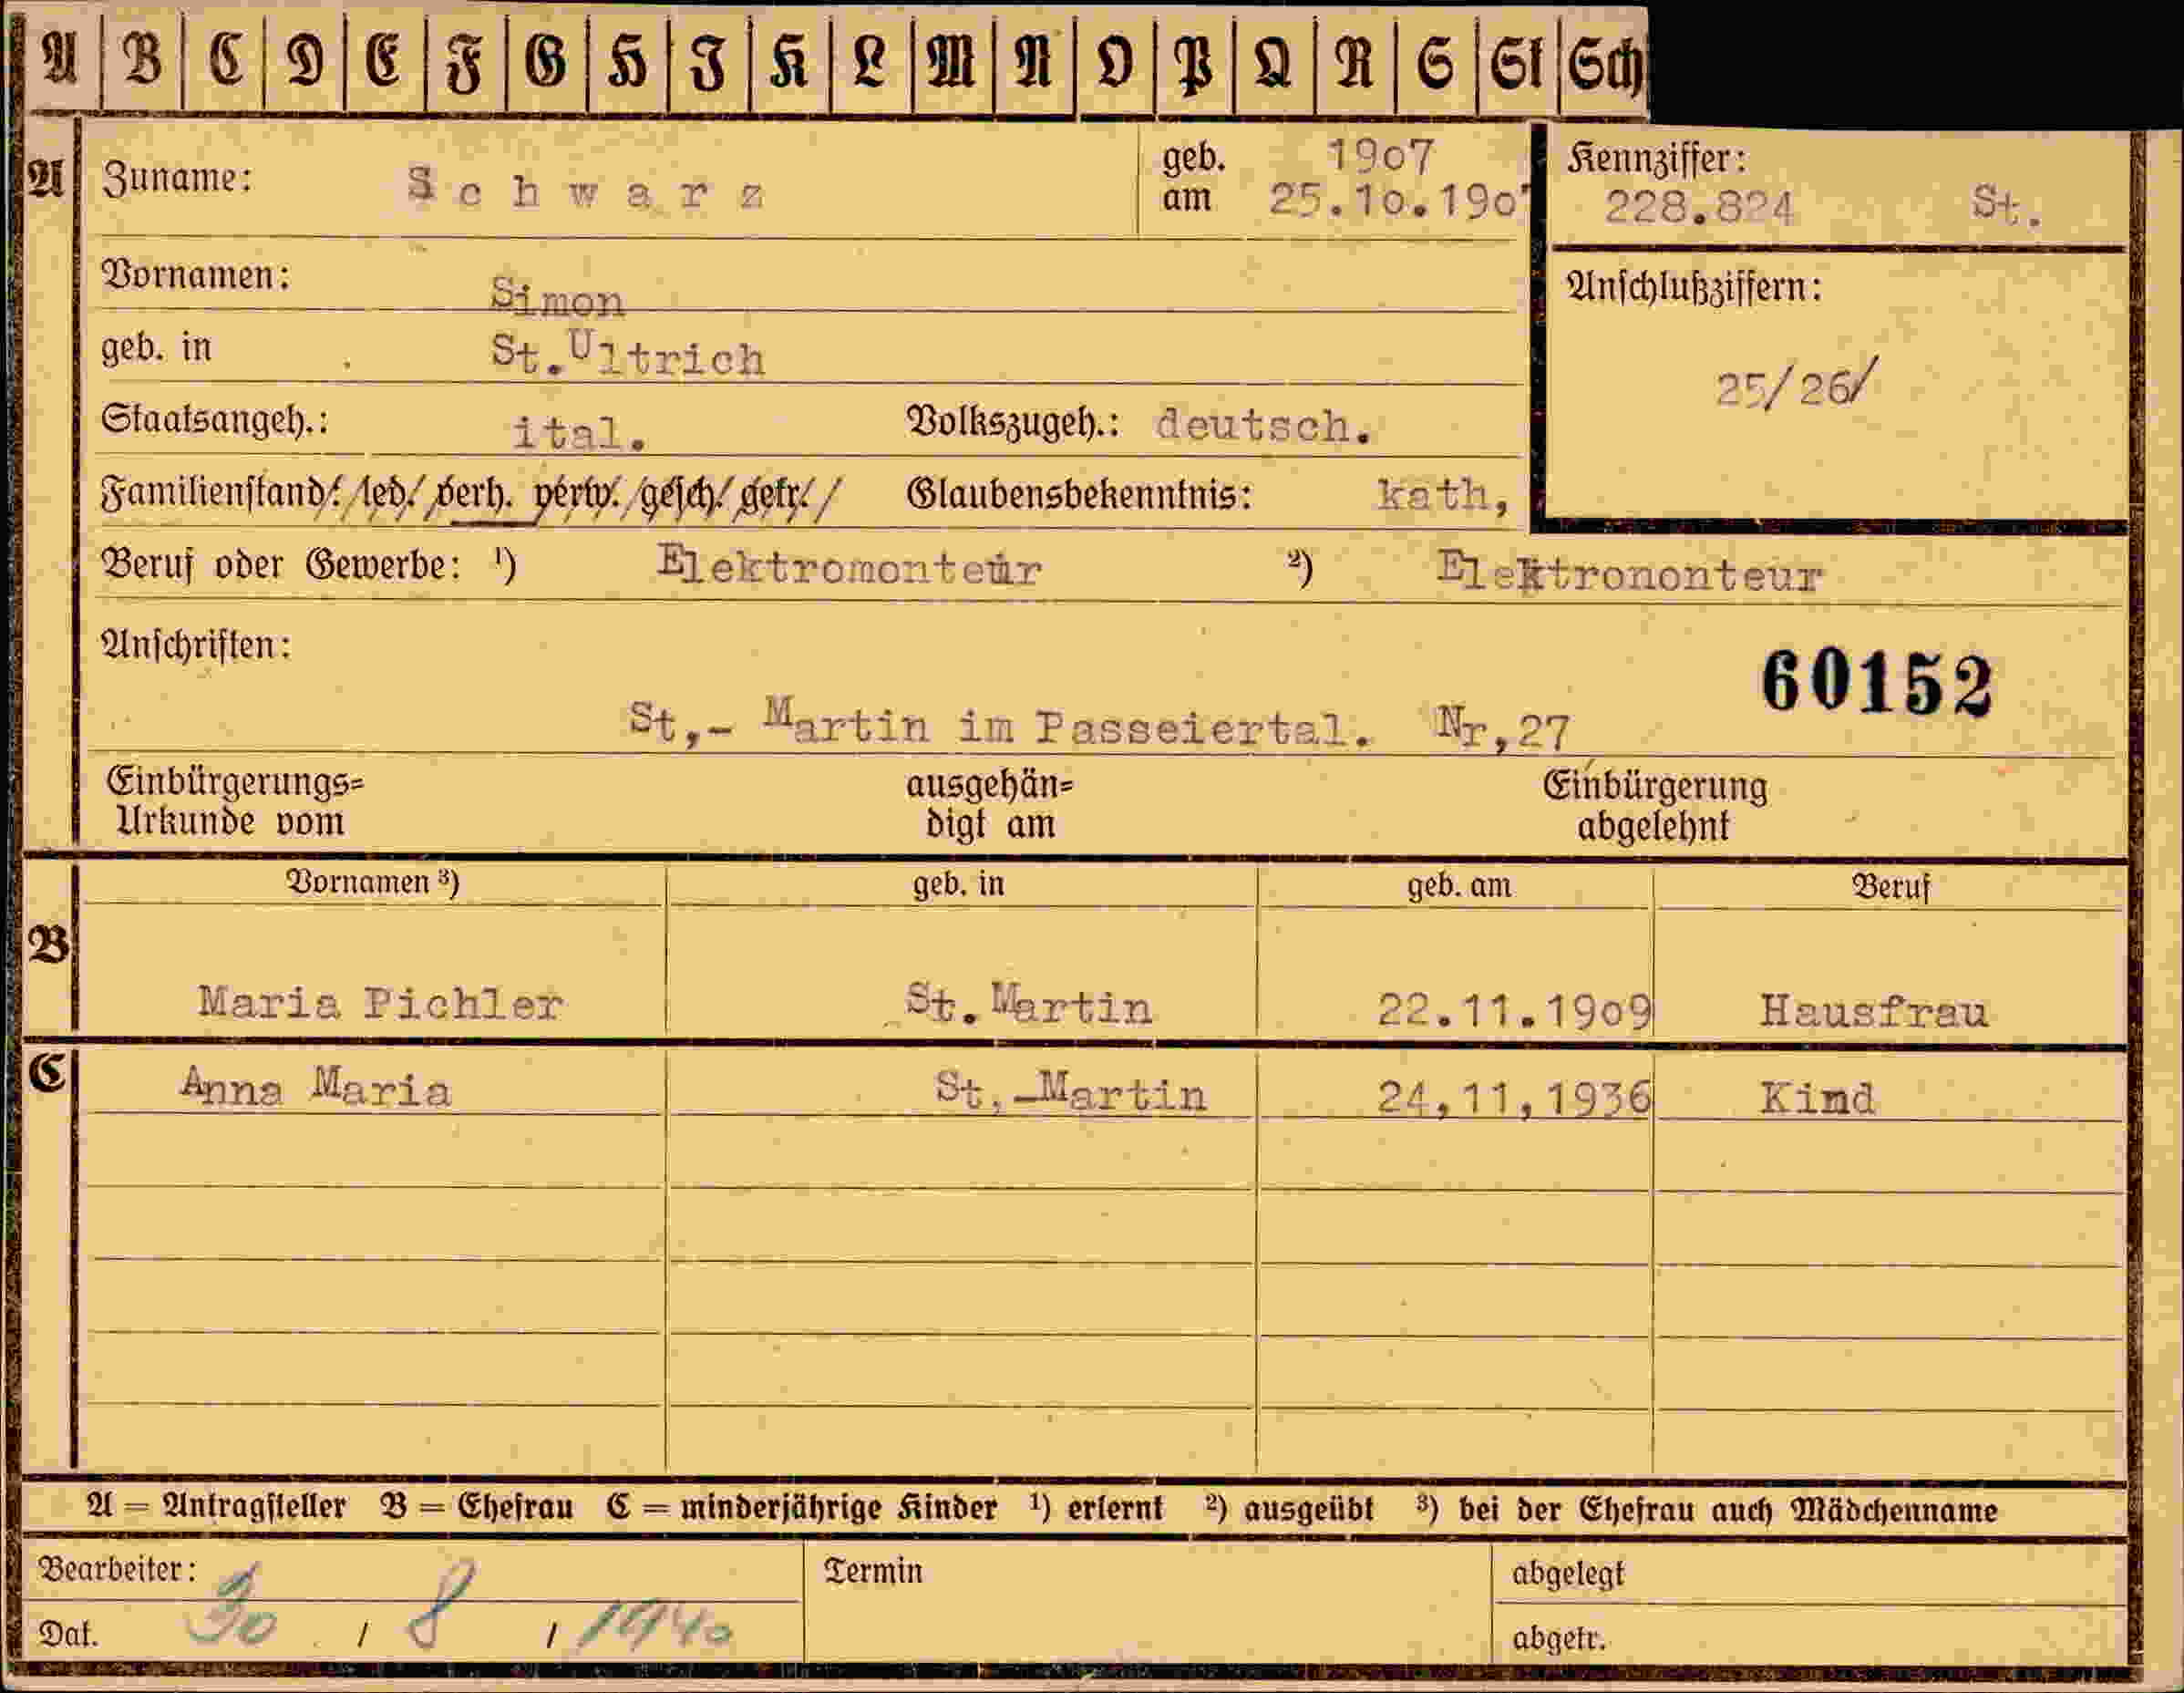 A B C D E F G H I K L M N O P Q R S St Sch
A Zuname: Schwarz geb. am 1907 25.10.190 Kennziffer: 228.824 St.
Vornamen: Simon Anschlußziffern:
geb. in St.Ultrich 25/26/
Staatsangeh.: ital. Volkszugeh.: deutsch.
Familienstand: led. verh. verw. gesch. getr. Glaubensbekenntnis: kath,
Beruf oder Gewerbe: ¹) Elektromonteur ²) Elektrononteur
Anschriften: 60152
St,- Martin im Passeiertal. Nr,27
Einbürgerungs= ausgehän= Einbürgerung
Urkunde vom digt am abgelehnt
Vornamen ³) geb. in geb. am Beruf
B
Maria Pichler St.Martin 22.11.1909 Hausfrau
C Anna Maria St,-Martin 24,11,1936 Kind
A = Antragsteller B = Ehefrau C = minderjährige Kinder ¹) erlernt ²) ausgeübt ³) bei der Ehefrau auch Mädchenname
Bearbeiter: Termin abgelegt
Dat. 30 / 8 / 1940 abgetr.